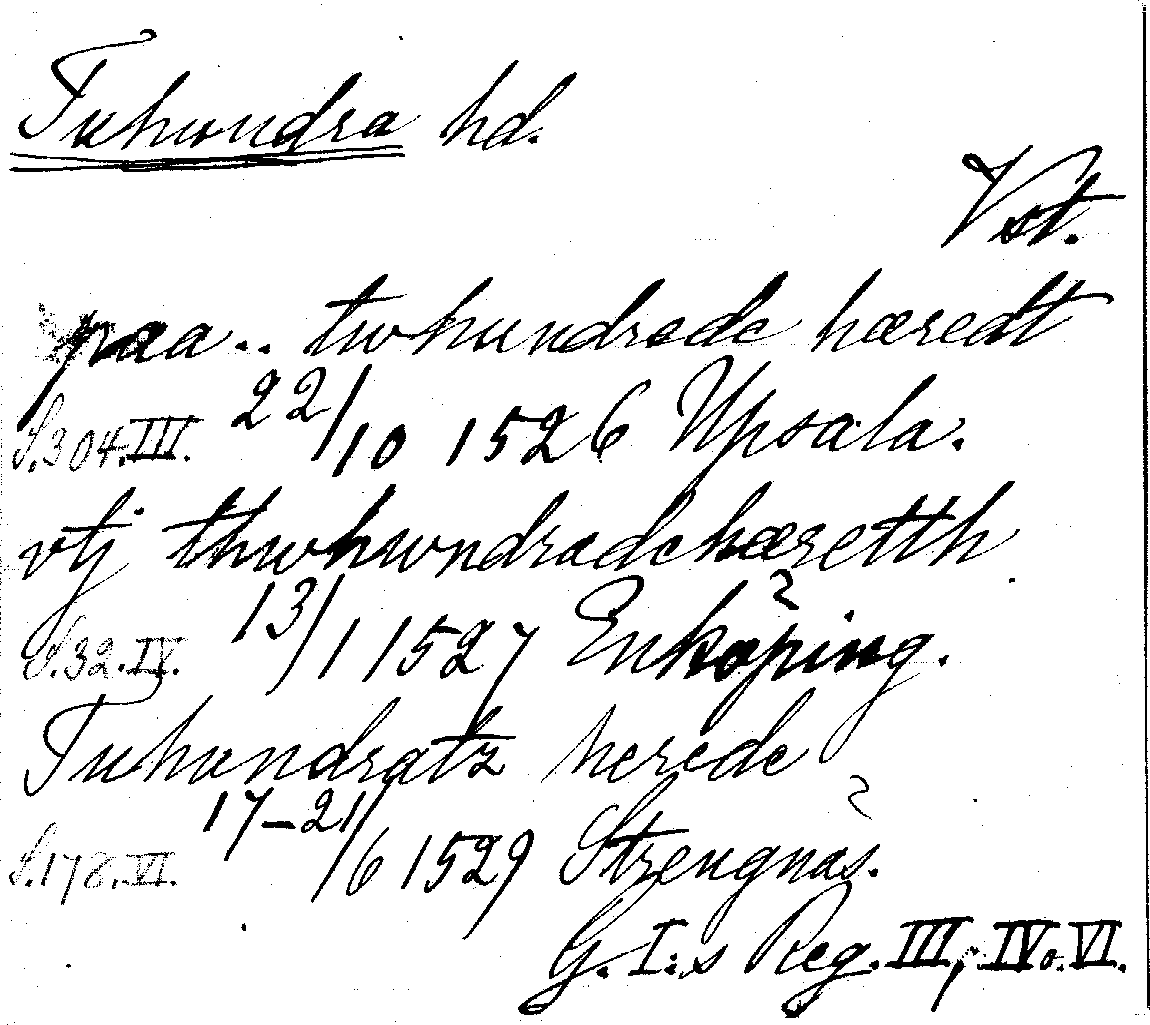 Tuhundra hd.
Vst.
paa.. twhundrade hæredt
S.304.III. 22/10 1526 Upsala.
vtj thwhwndradehæretth
S.32.IV. 13/1 1527 Enköping.
Tuhundratz herede
S.178.VI. 17-21/6 1529 Strengnäs.
G. I:s Reg. III, IV o. VI.